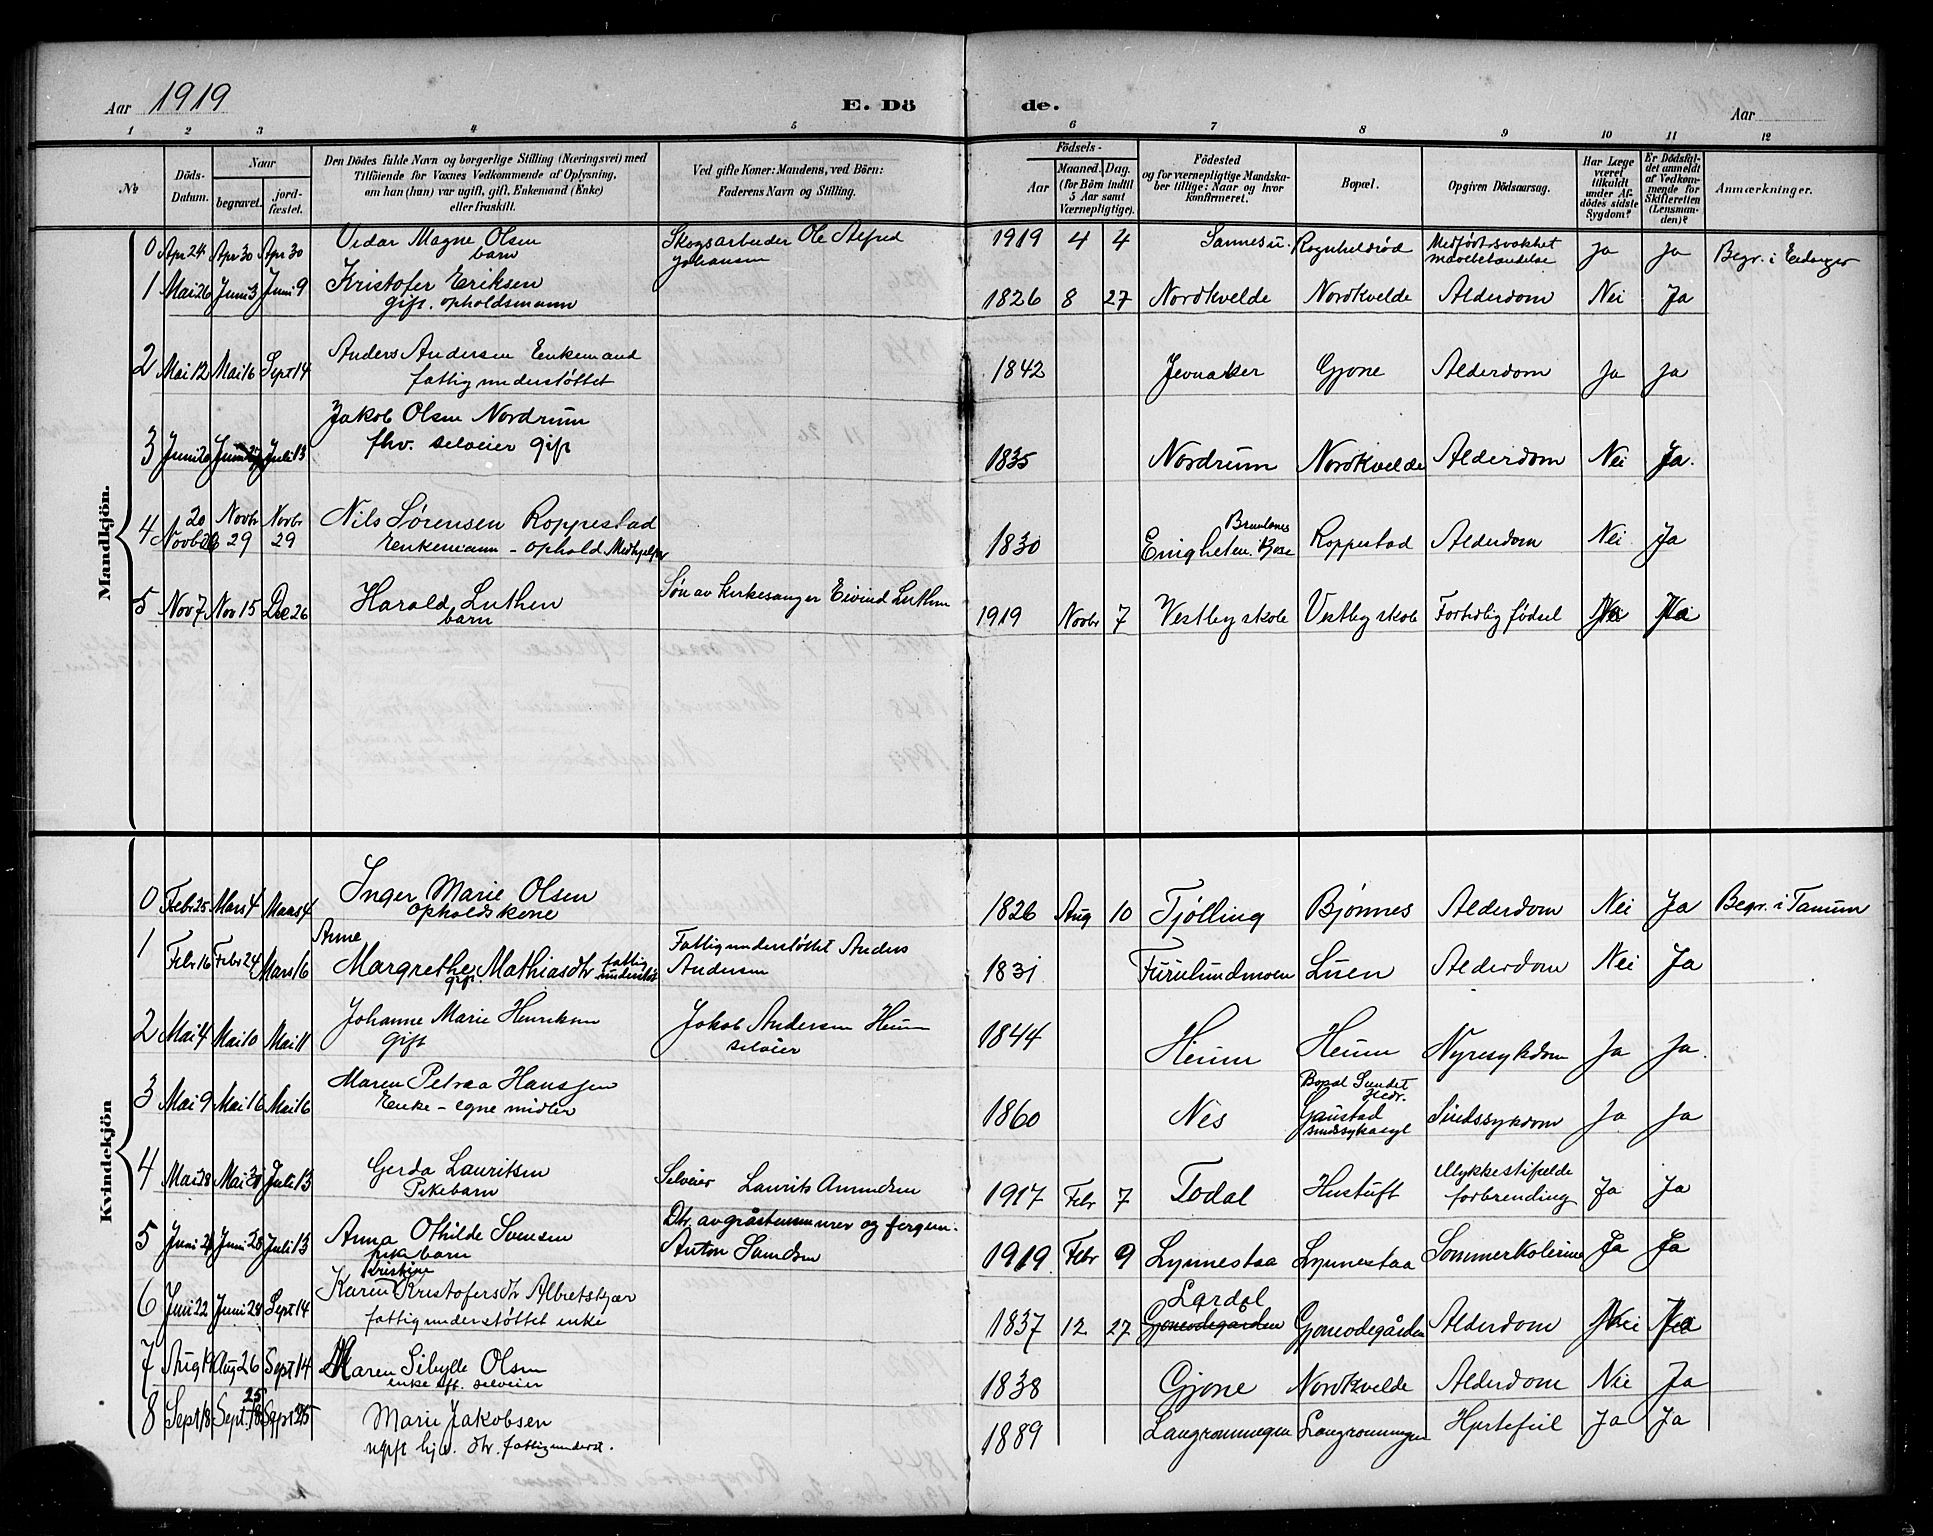 Aar 1919
E. Döde.
Aar
1 2 3 4 5 6 7 8 9 10 11 12
No
Döds-Datum.
Naar
begravet.
jord-fæstet.
Den Dödes fulde Navn og borgerlige Stilling (Næringsvei) med
Tilföiende for Voxnes Vedkommende af Oplysning,
om han (hun) var ugift, gift, Enkemand (Enke)
eller fraskilt.
Ved gifte Koner: Mandens, ved Börn:
Faderens Navn og Stilling.
Födsels-
Aar
Maaned. Dag.
(for Börn indtil
5 Aar samt
Værnepligtige).
Födested
og for værnepligtige Mandska-
ber tillige: Naar og hvor
konfirmeret.
Bopæl.
Opgiven Dödsaarsag.
Har Læge
været
tilkaldt
under Af-
dödes sidste
Sygdom?
Er Dödsfal-
det anmeldt
af Vedkom-
mende for
Skifteretten
(Lensman-
den)?
Anmærkninger.
Mandkjön.
0 Apr 24 Apr 30 Apr 30 Vidar Magne Olsen
barn
Skogsarbeider Ole Alfred
Johansen
1919 4 4 Sannes u. Rognhildrød Medfødt svakhet
mavebetændelse
Ja Ja Begr. i Eidanger
1 Mai 26 Juni 3 Juni 9 Kristofer Eriksen
gift. opholdsmann
1826 8 27 Nordkvelde Nordkvelde Alderdom Nei Ja
2 Mai 12 Mai 16 Sept 14 Anders Andersen Enkemand
fattigunderstøttet
1842 Jevnaker Gjone Alderdom Ja Ja
3 Juni 20 Juni Juli 13 Jakob Olsen Nordrum
fhv. selveier gift
1835 Nordrum Nordkvelde Alderdom Nei Ja.
4 20 Novbr Novbr 29 Novbr 29 Nils Sørensen Roppestad
Enkemann - ophold Medhjelper
1830 Enigheten. Brunlanes Roppestad Alderdom Nei Ja
5 Nov 7 Nov 15 Dec 26 Harald Luthen
barn
Søn av Kirkesanger Eivind Luthen
1919 Novbr 7 Vestby skole Vestby skole Fortidlig fødsel
Kvindekjön
0 Febr 25 Mars 4 Mars 4 Inger Marie Olsen
opholdskone
1826 Aug 10 Tjølling Bjønnes Alderdom Nei Ja Begr. i Tanum
1 Febr 16 Febr 24 Mars 16 Anne
Margrethe Mathiasdtr fattig
gift. underst.
Fattigunderstøttet Anders
Andersen
1831 Furulundmoen Luen Alderdom Nei Ja
2 Mai 4 Mai 10 Mai 11 Johanne Marie Henriksen
gift
Jakob Andersen Heum
selveier
1844 Heum Heum Nyresykdom Ja Ja.
3 Mai 9 Mai 16 Mai 16 Maren Petrea Hanssen
Enke - egne midler
1860 Nes Bopal Sundet
Hedr.
Gaustad
sindssykeasyl
Sindssykdom Ja Ja
4 Mai 28 Mai 31 Juli 13 Gerda Lauritsen
Pikebarn
Selveier Laurits Amundsen
1917 Febr 7 Todal Hustuft Slykkestifælde
forbrending
Ja Ja
5 Juni 21 Juni 28 Juli 13 Anna Othilde Svensen
pikebarn
Dtr. av gråstensmurer og forgm.
Anton Svendsen
1919 Febr 9 Lynnestaa Lynnestaa Sommerkolerine Ja Ja
6 Juni 22 Juni 28 Sept 14 Kristine
Karen Kristofersdtr Albretskjær
fattigunderstøttet enke
1837 12 27 Lardal
Gjoneødegården Gjoneødegården Alderdom Nei
7 Aug 19 Aug 26 Sept 14 Maren Sibylle Olsen
enke eft. selveier
1838 Gjone Nordkvelde Alderdom Nei Ja
8 Sept 18 25
Sept. 18 Sept 25 Marie Jakobsen
ugift hjv. dtr. fattigunderst.
1889 Langrønningen Langrønningen Hjertefeil Ja Ja